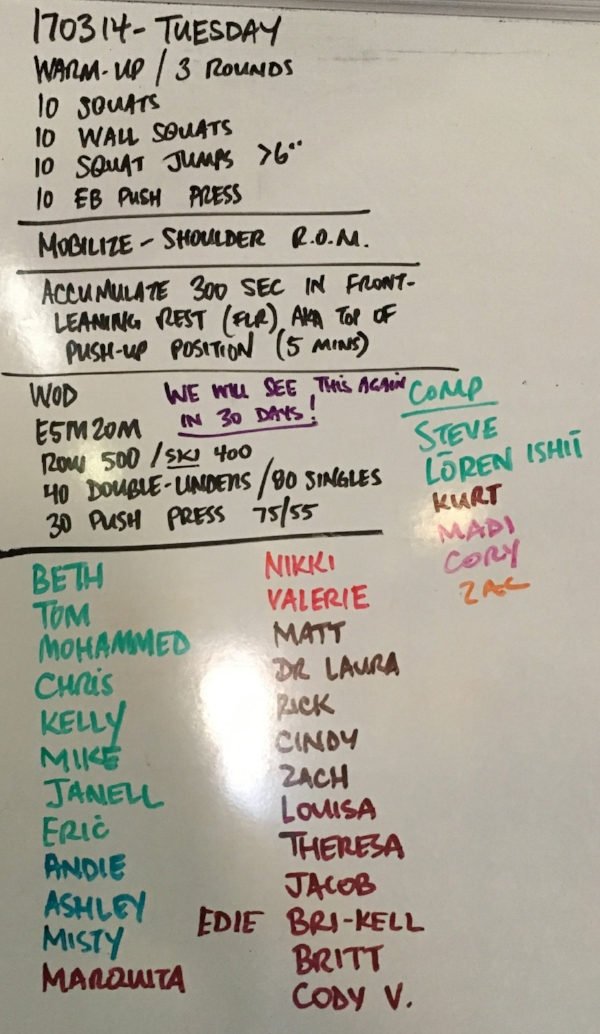 170314 - TUESDAY
WARM-UP / 3 ROUNDS
10 SQUATS
10 WALL SQUATS
10 SQUAT JUMPS >6"
10 EB PUSH PRESS
MOBILIZE - SHOULDER R.O.M.
ACCUMULATE 300 SEC IN FRONT-
LEANING REST (FLR) AKA TOP OF
PUSH-UP POSITION (5 MINS)
WOD
E5M20M
ROW 500 / SKI 400
40 DOUBLE-UNDERS / 80 SINGLES
30 PUSH PRESS 75/55
WE WILL SEE THIS AGAIN
IN 30 DAYS!
COMP
STEVE
LOREN ISHII
KURT
MADI
CORY
ZAC
BETH
TOM
MOHAMMED
CHRIS
KELLY
MIKE
JANELL
ERIC
ANDIE
ASHLEY
MISTY
MARQUITA
NIKKI
VALERIE
MATT
DR LAURA
RICK
CINDY
ZACH
LOUISA
THERESA
JACOB
EDIE BRI-KELL
BRITT
CODY V.